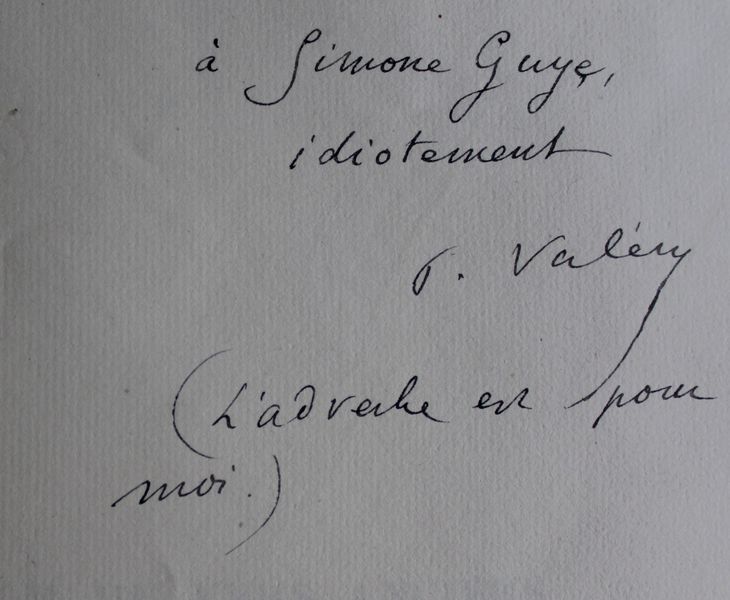 à Simone Guye,
idiotement
P. Valéry
(L'adverbe est pour
moi.)